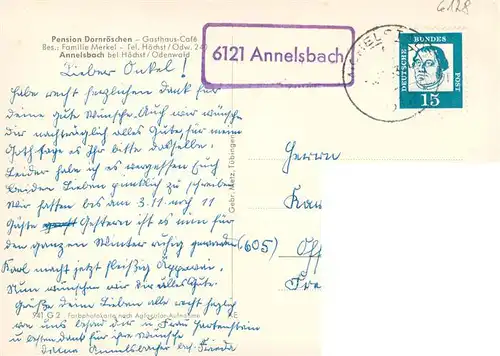 6128
Pension Dornröschen - Gasthaus-Café
Bes.: Familie Merkel - Tel. Höchst/Odw. 240
Annelsbach bei Höchst/Odenwald
6121 Annelsbach
DEUTSCHE BUNDES POST
15
Lieber Onkel!
habe recht herzlichen Dank für
deine gute Wünsche. Auch wir wünsche
dir nachträglich alles Gute, für mein
Goth sage es Ihr bitte dasselbe.
Leider habe ich es vergessen Euch
beiden Lieben pünktlich zu schreiben
Wir hatten bis am 3.11. noch 11
Gäste Gestern ist es nun für
den ganzen Winter ruhig geworden
Karl macht jetzt fleißig
Nun wünschen wir dir alles Gute.
Grüße deine Lieben alle recht herzlich
von uns besond der u Frau Hartenstein
u besten dank für ihre Wünsche
deine Annelsbacher bes. Frieda
Herrn
(605)
Gebr. Metz, Tübingen
941 G 2 Farbphotokarte nach Agfacolor-Aufnahme